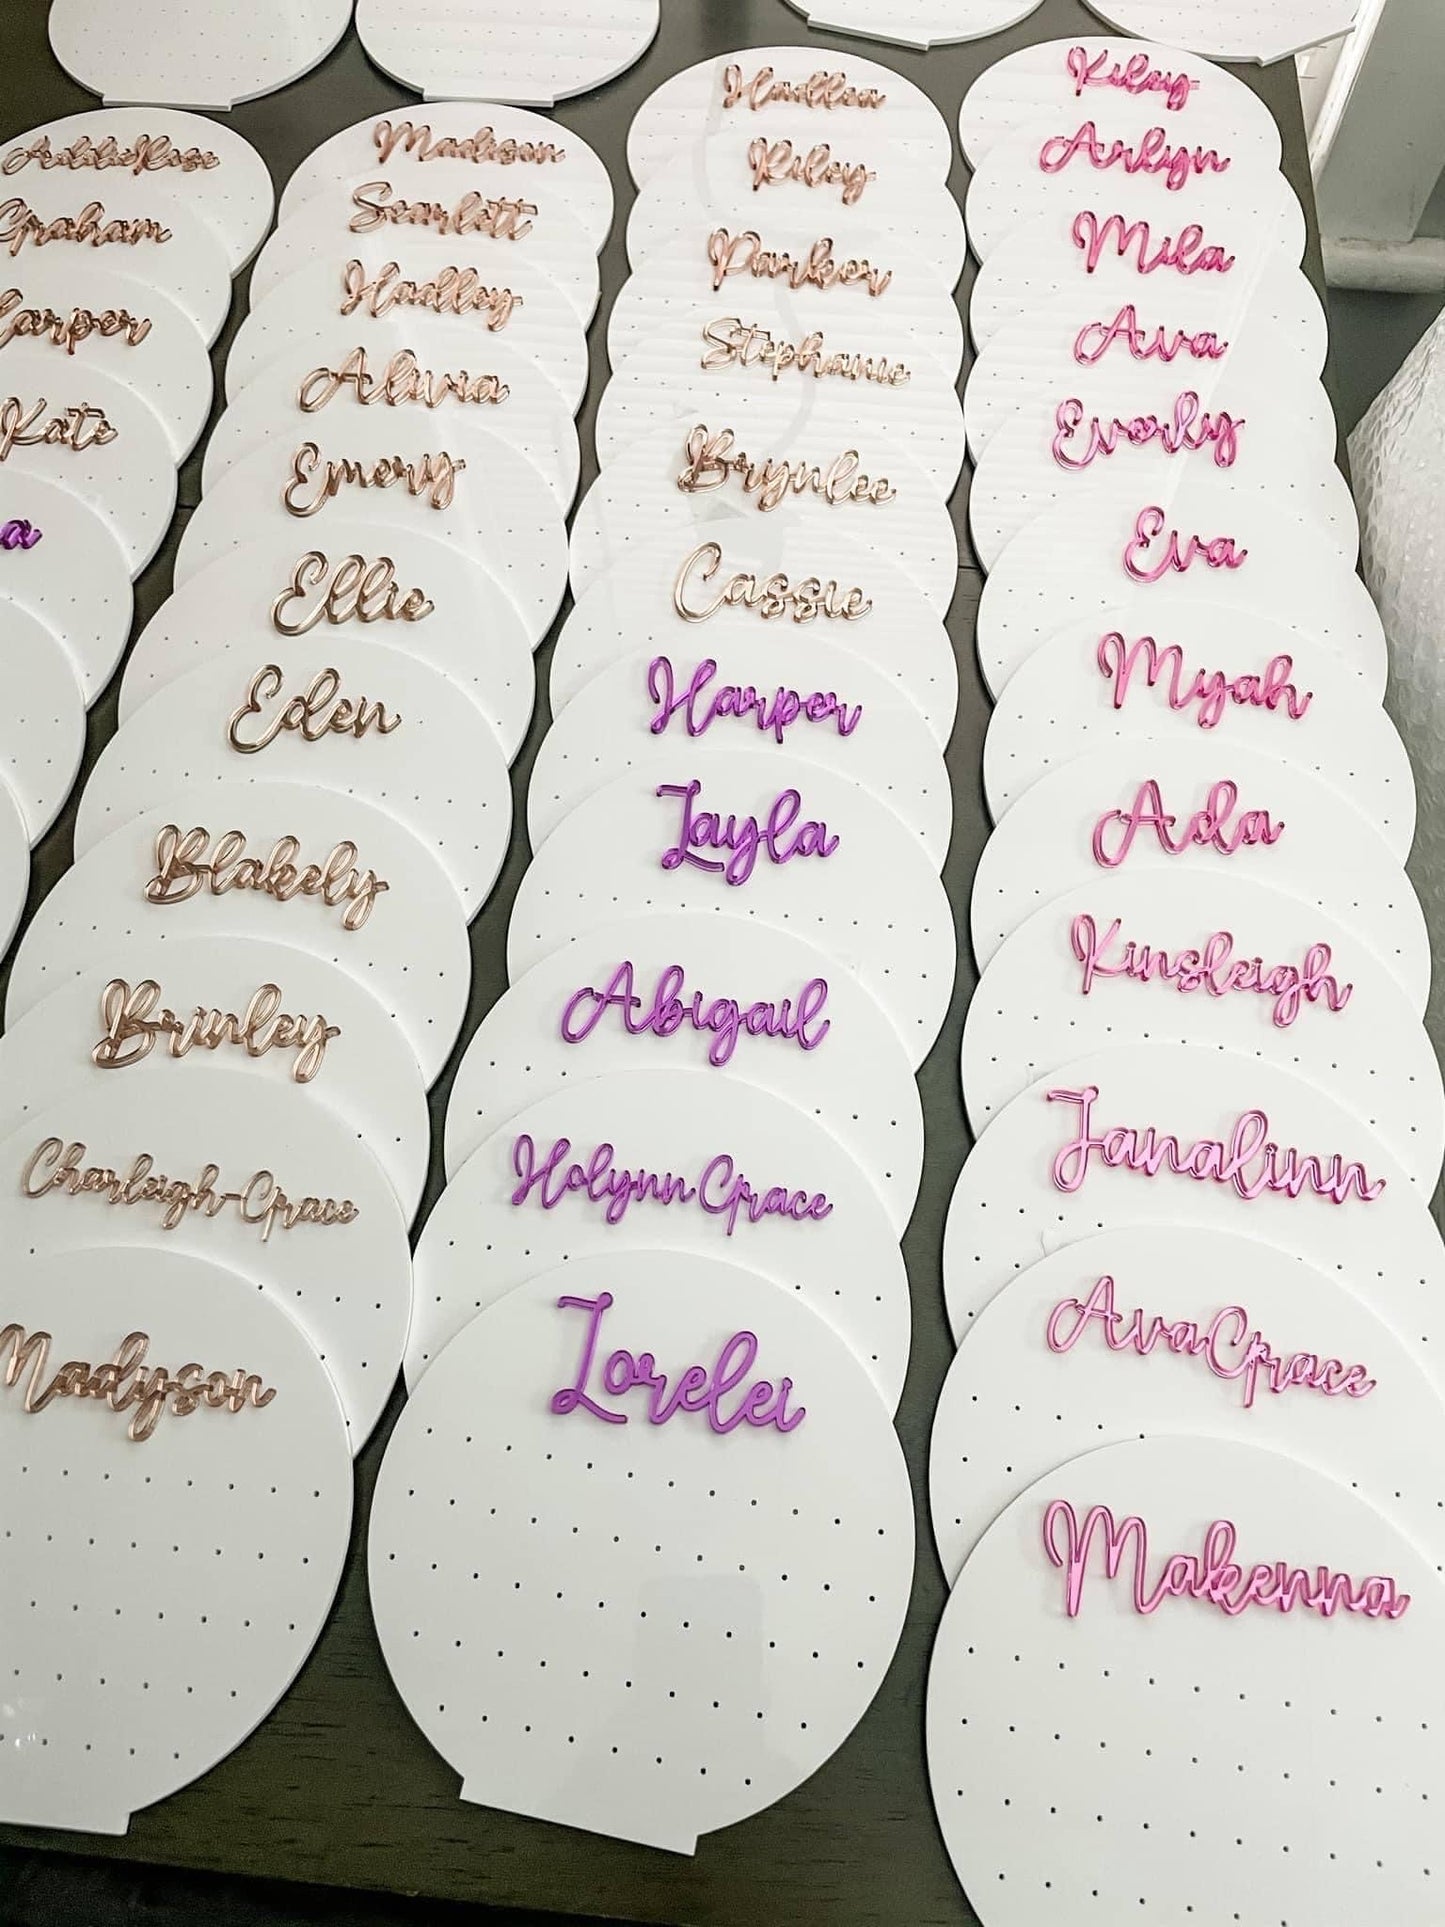 AddieRose
Graham
Harper
Kate
a
Madison
Scarlett
Hadley
Alivia
Emery
Ellie
Eden
Blakely
Brinley
Charleigh-Grace
Madyson
Hadlea
Riley
Parker
Stephanie
Brynlee
Cassie
Harper
Layla
Abigail
Holynn Grace
Lorelei
Kiley
Arlyn
Mila
Ava
Everly
Eva
Myah
Ada
Kinsleigh
Janalinn
AvaGrace
Makenna